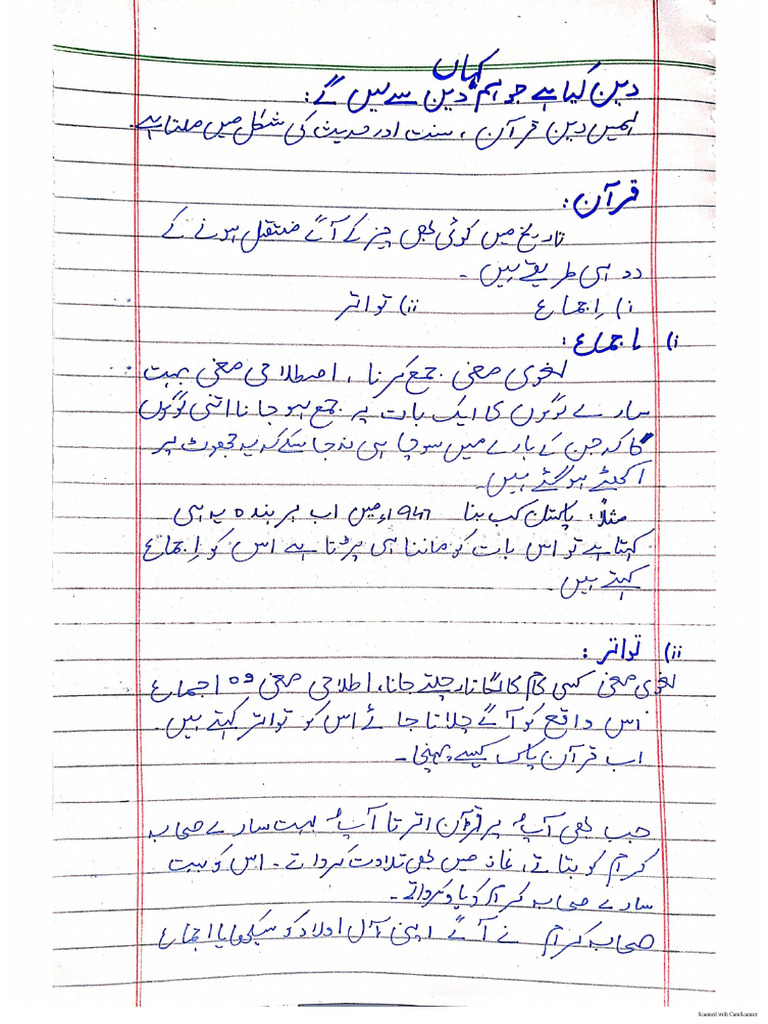 کہاں
دین کیا ہے جو ہم دین سے لیں گے:
ہمیں دین قرآن، سنت اور حدیث کی شکل میں ملتا ہے۔
قرآن:
تاریخ میں کوئی بھی چیز کے آگے منتقل ہونے کے
دو ہی طریقے ہیں۔
i) اِجماع ii) تواتر
i) اجماع:
لغوی معنی جمع کرنا، اصطلاحی معنی بہت
سارے لوگوں کا ایک بات پر جمع ہو جانا اتنی لوگوں
کا کہ جن کے بارے میں سوچا ہی نہ جا سکے کہ یہ جھوٹ پر
اکھٹے ہو گئے ہیں۔
مثلاً: پاکستان کب بنا 1947ء میں اب ہر بندہ یہ ہی
کہتا ہے تو اس بات کو ماننا ہی پڑتا ہے اس کو اِجماع
کہتے ہیں۔
ii) تواتر:
لغوی معنی کسی کام کا لگاتار چلتے جانا، اطلاحی معنی وہ اجماع
اس واقع کو آگے چلاتا جائے اس کو تواتر کہتے ہیں۔
اب قرآن پاک کیسے پہنچا۔
جب بھی آپؐ پر قرآن اترتا آپؐ بہت سارے صحابہ
کرام کو بتاتے، نماز میں بھی تلاوت کرواتے۔ اس کو بہت
سارے صحابہ کرام کو یاد کرواتے۔
صحابہ کرام نے آگے اپنی آل اولاد کو سیکھایا اجماع
Scanned with CamScanner